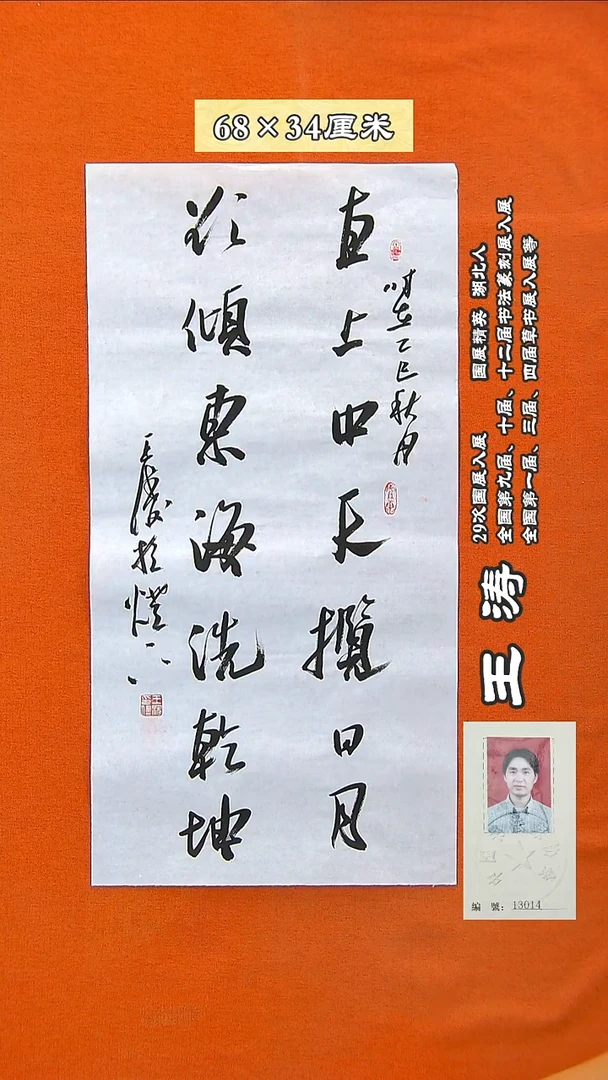 68×34厘米
直上中天攬日月
時在乙巳秋月
欲傾東海洗乾坤
王濤於燈下
王涛
29次国展入展 国展精英 湖北人
全国第九届、十届、十二届书法篆刻展入展
全国第一届、三届、四届草书展入展等
編號: 13014